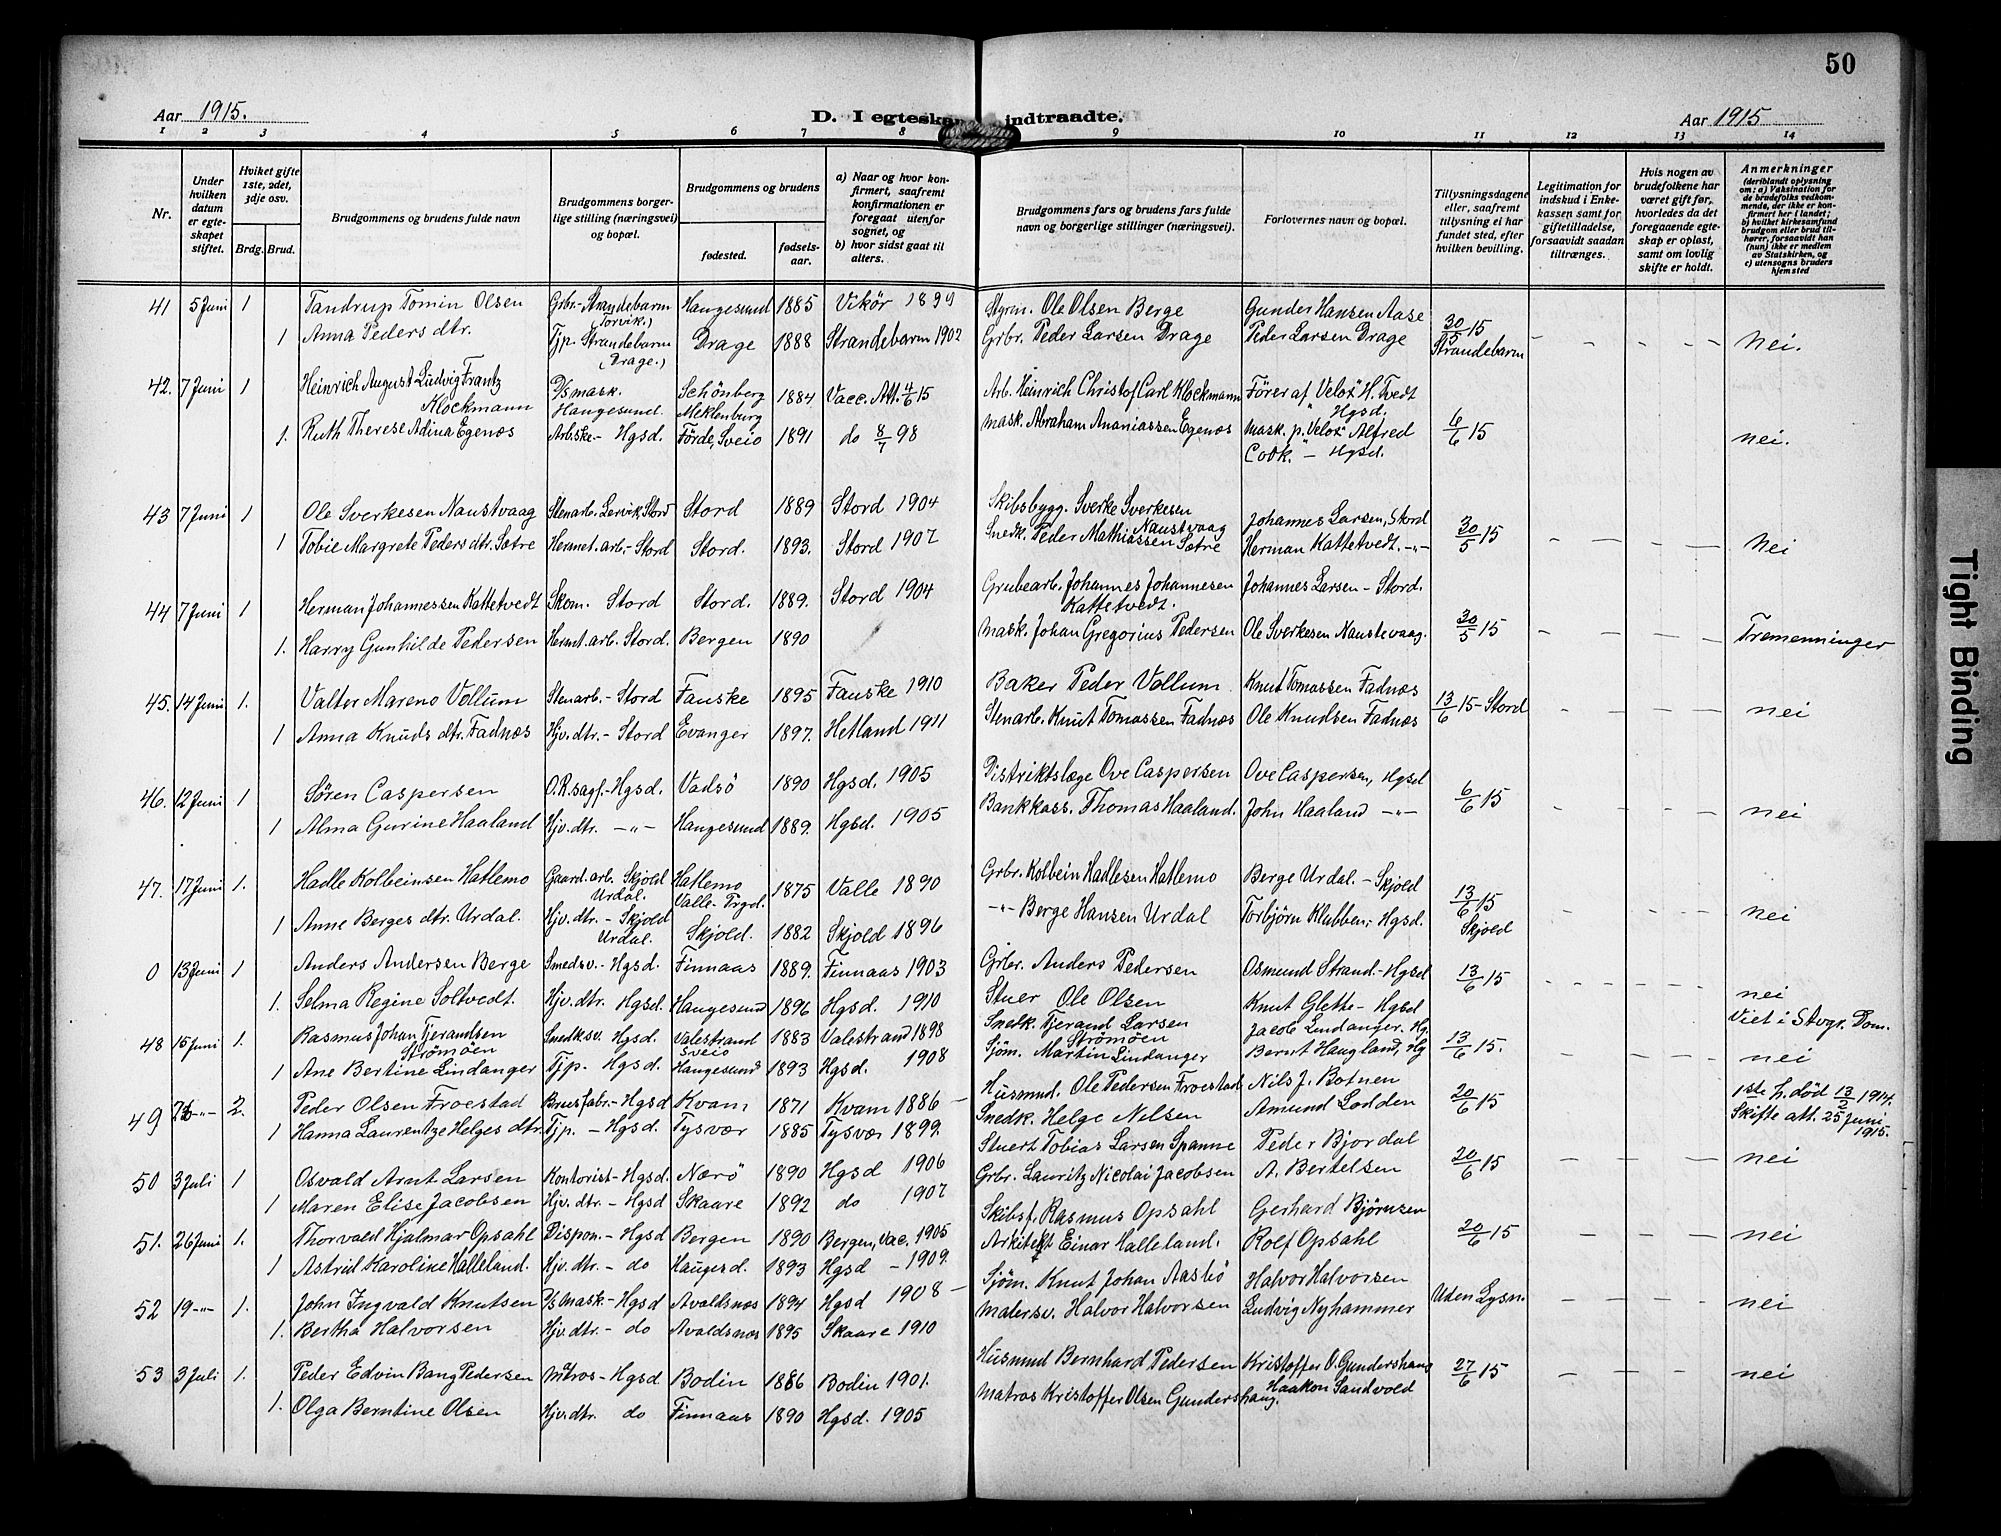 50
Aar 1915.
D. I egteska indtraadte.
Aar 1915
1 2 3 4 5 6 7 8 9 10 11 12 13 14
Nr.
Under hvilken datum er egte-skapet stiftet.
Hviket gifte 1ste, 2det, 3dje osv.
Brdg. Brud.
Brudgommens og brudens fulde navn
Brudgommens borger-lige stilling (næringsvei) og bopæl.
Brudgommens og brudens
fødested.
fødsels-aar.
a) Naar og hvor kon-firmert, saafremt konfirmationen er foregaat utenfor sognet, og
b) hvor sidst gaat til alters.
Brudgommens fars og brudens fars fulde navn og borgerlige stillinger (næringsvei).
Forlovernes navn og bopæl.
Tillysningsdagene eller, saafremt tillysning ei har fundet sted, efter hvilken bevilling.
Legitimation for indskud i Enke-kassen samt for giftetilladelse, forsaavidt saadan tiltrænges.
Hvis nogen av brudefolkene har været gift før, hvorledes da det foregaaende egte-skap er opløst, samt om lovlig skifte er holdt.
Anmerkninger
(deriblandt oplysning om: a) Vaksination for de brudefolks vedkom-mende, der ikke er kon-firmert her i landet; b) hvilket kirkesamfund brudgom eller brud til-hører, forsaavidt han (hun) ikke er medlem av Statskirken, og c) utensogns bruders hjemsted
41 5 Juni 1 Tandrup Tomin Olsen Grbr.- Strandebarm (Torvik.) Haugesund 1885 Vikör Styrm. Ole Olsen Berge Gunder Hansen Aase
1 Anna Peders dtr. Tjp. Strandebarm (Drage.) Drage 1888 Strandebarm 1902 Grbr. Peder Larsen Drage Peder Larsen Drage 30/5 15 Strandebarm - - - - Nei.
42. 7 Juni 1 Heinrich August Ludvig Frantz Klockmann D/S mask. Haugesund. Schönberg Meklenburg 1884 Vacc. Att. 4/6 15 Arb. Heinrich Christof Carl Klockmann Förer af "Velox" H. Tvedt Hgsd.
1. Ruth Therese Adina Egenæs Arbske.- Hgsd. Förde, Sveio 1891 do 8/7 98 Mask. Abraham Ananiassen Egenæs Mask. p. "Velox" Alfred Cook. - Hgsd. 6/6 15 nei.
43 7 Juni 1 Ole Sverkesen Naustvaag Stenarb. Lervik, Stord Stord 1889 Stord 1904 Skibsbygg. Sverke Sverkesen Naustvaag Johannes Larsen, Stord
1 Tobie Margrete Peders dtr. Sætre Hermet. arb.- Stord Stord. 1893. Stord 1907 Snedk. Peder Mathiassen Sætre Herman Kattetvedt. -"- 30/5 15 - - - - Nei
44 7 Juni 1 Herman Johannessen Kattetvedt Skom. Stord Stord. 1889. Stord 1904 Grubearb. Johannes Johannesen Kattetvedt. Johannes Larsen - Stord.
1. Harry Gunhilde Pedersen Hermet. arb. Stord. Bergen 1890 Mask. Johan Gregorius Pedersen Ole Sverkesen Naustevaag. 30/5 15 - - - - Tremenninger
45. 14 Juni 1. Valter Mareno Vollum Stenarb.- Stord Fauske 1895 Fauske 1910 Baker Peder Vollum Knut Tomassen Fadnæs
1 Anna Knuds dtr. Fadnæs Hjv. dtr.- Stord Evanger 1897. Hetland 1911 Stenarb. Knut Tomassen Fadnæs Ole Knudsen Fadnæs 13/6 15 - Stord - - - - nei
46. 12 Juni 1 Søren Caspersen O.R.sagf.- Hgsd. Vadsö 1890 Hgsd. 1905 Distriktslæge Ove Caspersen Ove Caspersen, Hgsd
1 Alma Gurine Haaland Hjv. dtr. -"- Haugesund 1889. Hgsd. 1905 Bankkass. Thomas Haaland. John Haaland -"- 6/6 15 - - - nei
47. 17 Juni 1. Hadle Kolbeinsen Hatlemo Gaard. arb. Skjold Urdal. Hatlemo Valle - 1875 Valle 1890 Grbr. Kolbein Hadlesen Hatlemo Berge Urdal. - Skjold
1 Anne Berges dtr. Urdal. Hjv. dtr. - Skjold Urdal. Skjold. 1882 Skjold 1896 -"- Berge Hansen Urdal Torbjørn Klubben,- Hgsd. 13/6 15 Skjold - - - - nei
0 13 Juni 1 Anders Andersen Berge Smedsv.- Hgsd. Finnaas 1889. Finnaas 1903 Grbr. Anders Pedersen Osmund Strand.- Hgsd 13/6 15
1. Selma Regine Soltvedt. Hjv. dtr. Hgsd. Haugesund 1896 Hgsd. 1910 Stuer Ole Olsen Knut Glette - Hgsd nei Viet i Stvgr. Dom.
48 15 Juni 1. Rasmus Johan Tjerandsen Strömöen Snedksv. Hgsd. Valestrand Sveio 1883 Valestrand 1898 Snedk. Tjerand Larsen Strömöen Jacob Lindanger. Hg.
1 Ane Bertine Lindanger Tjp. Hgsd. Haugesund 1893 Hgsd. 1908 Sjöm. Martin Lindanger Bernt Haugland, Hg 13/6 15. - - - nei
49 -"- 2. Peder Olsen Froestad Brusfabr.- Hgsd Kvam 1871 Kvam 1886 - Husmnd. Ole Pedersen Froestad Nils J. Botnen 20/6 15 1ste h. död 13/2 1914. Skifte att. 25 Juni 1915.
1 Hanna Laurentze Helges dtr. Tjp. - Hgsd. Tysvær 1885 Tysvær 1899. Snedk. Helge Nilsen Amund Lodden
50 3 Juli 1 Osvald Arnt Larsen Kontorist - Hgsd. Nærö 1890 Hgsd 1906 Stuert Tobias Larsen Spanne Peder Bjordal
1 Maren Elise Jacobsen Hjv. dtr. - Hgsd Skaare 1892 do 1907 Grbr. Lauritz Nicolai Jacobsen A. Bertelsen 20/6 15 - - - nei
51. 26 Juni 1. Thorvald Hjalmar Opsahl Dispon.- Hgsd Bergen 1890 Bergen, Vac. 1905 Skibsf. Rasmus Opsahl Gerhard Bjørnsen
1 Astrid Karoline Halleland. Hjv. dtr. - do Haugesd. 1893 Hgsd - 1909. Arkitekt Einar Halleland. Rolf Opsahl 20/6 15 - - - - nei
52 19 -"- 1. John Ingvald Knutsen D/S Mask - Hgsd Avaldsnæs 1894 Hgsd 1908 - Sjöm. Knut Johan Aasbö Halvor Halvorsen
1. Bertha Halvorsen Hjv. dtr. - do Avaldsnæs 1895 Skaare 1910 Malersv. Halvor Halvorsen Ludvig Nyhammer Uden Lysn. - - - - nei
53 3 Juli 1. Peder Edvin Bang Pedersen Matros - Hgsd Bodin 1886 Bodin 1901. Husmnd Bernhard Pedersen Kristoffer O. Gundershaug
1. Olga Berntine Olsen Hjv. dtr. do Finnaas 1890 Hgsd. 1905 Matros Kristoffer Olsen Gundershaug. Haakon Sandvold 27/6 15 - - - nei
Tight Binding